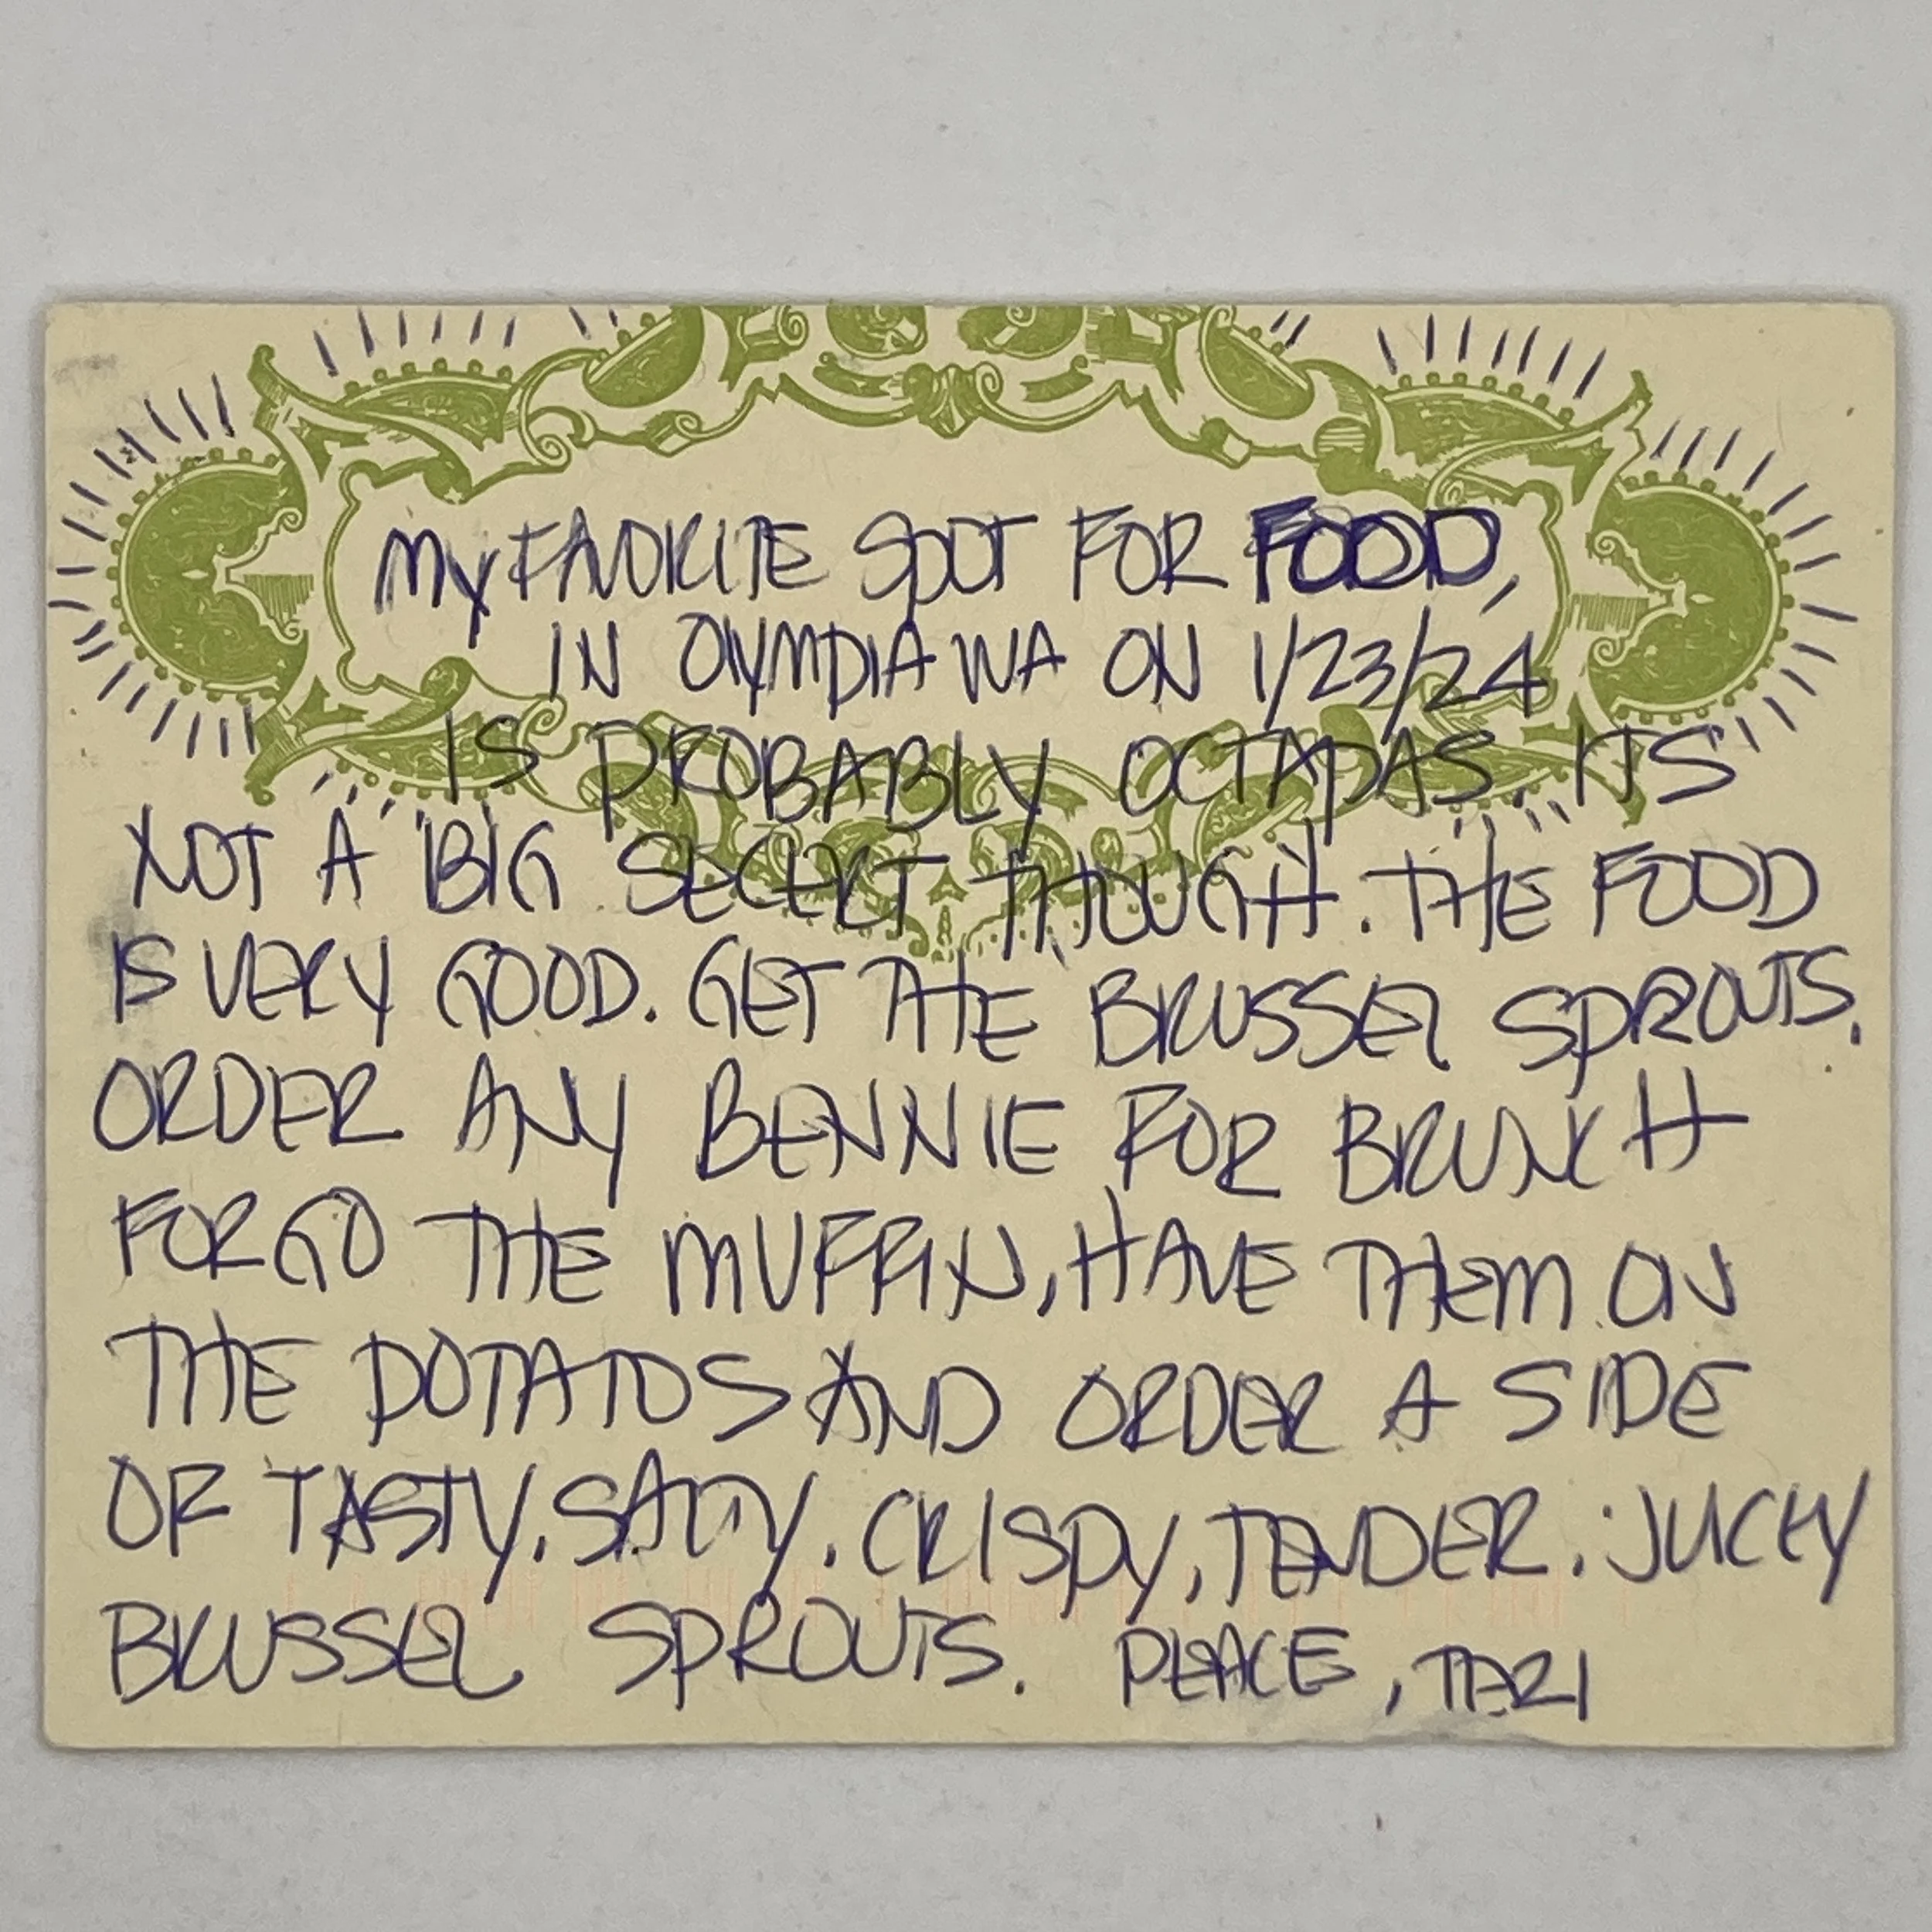 My FAVORITE SPOT FOR FOOD,
IN OLYMPIA WA ON 1/23/24
IS PROBABLY OCTAPAS. ITS
NOT A BIG SECERT THOUGH. THE FOOD
IS VERY GOOD. GET THE BRUSSEL SPROUTS.
ORDER ANY BENNIE FOR BRUNCH
FORGO THE MUFFIN, HAVE THEM ON
THE POTATOS AND ORDER A SIDE
OF TASTY, SALTY, CRISPY, TENDER, JUCEY
BRUSSEL SPROUTS. PEACE, TARI